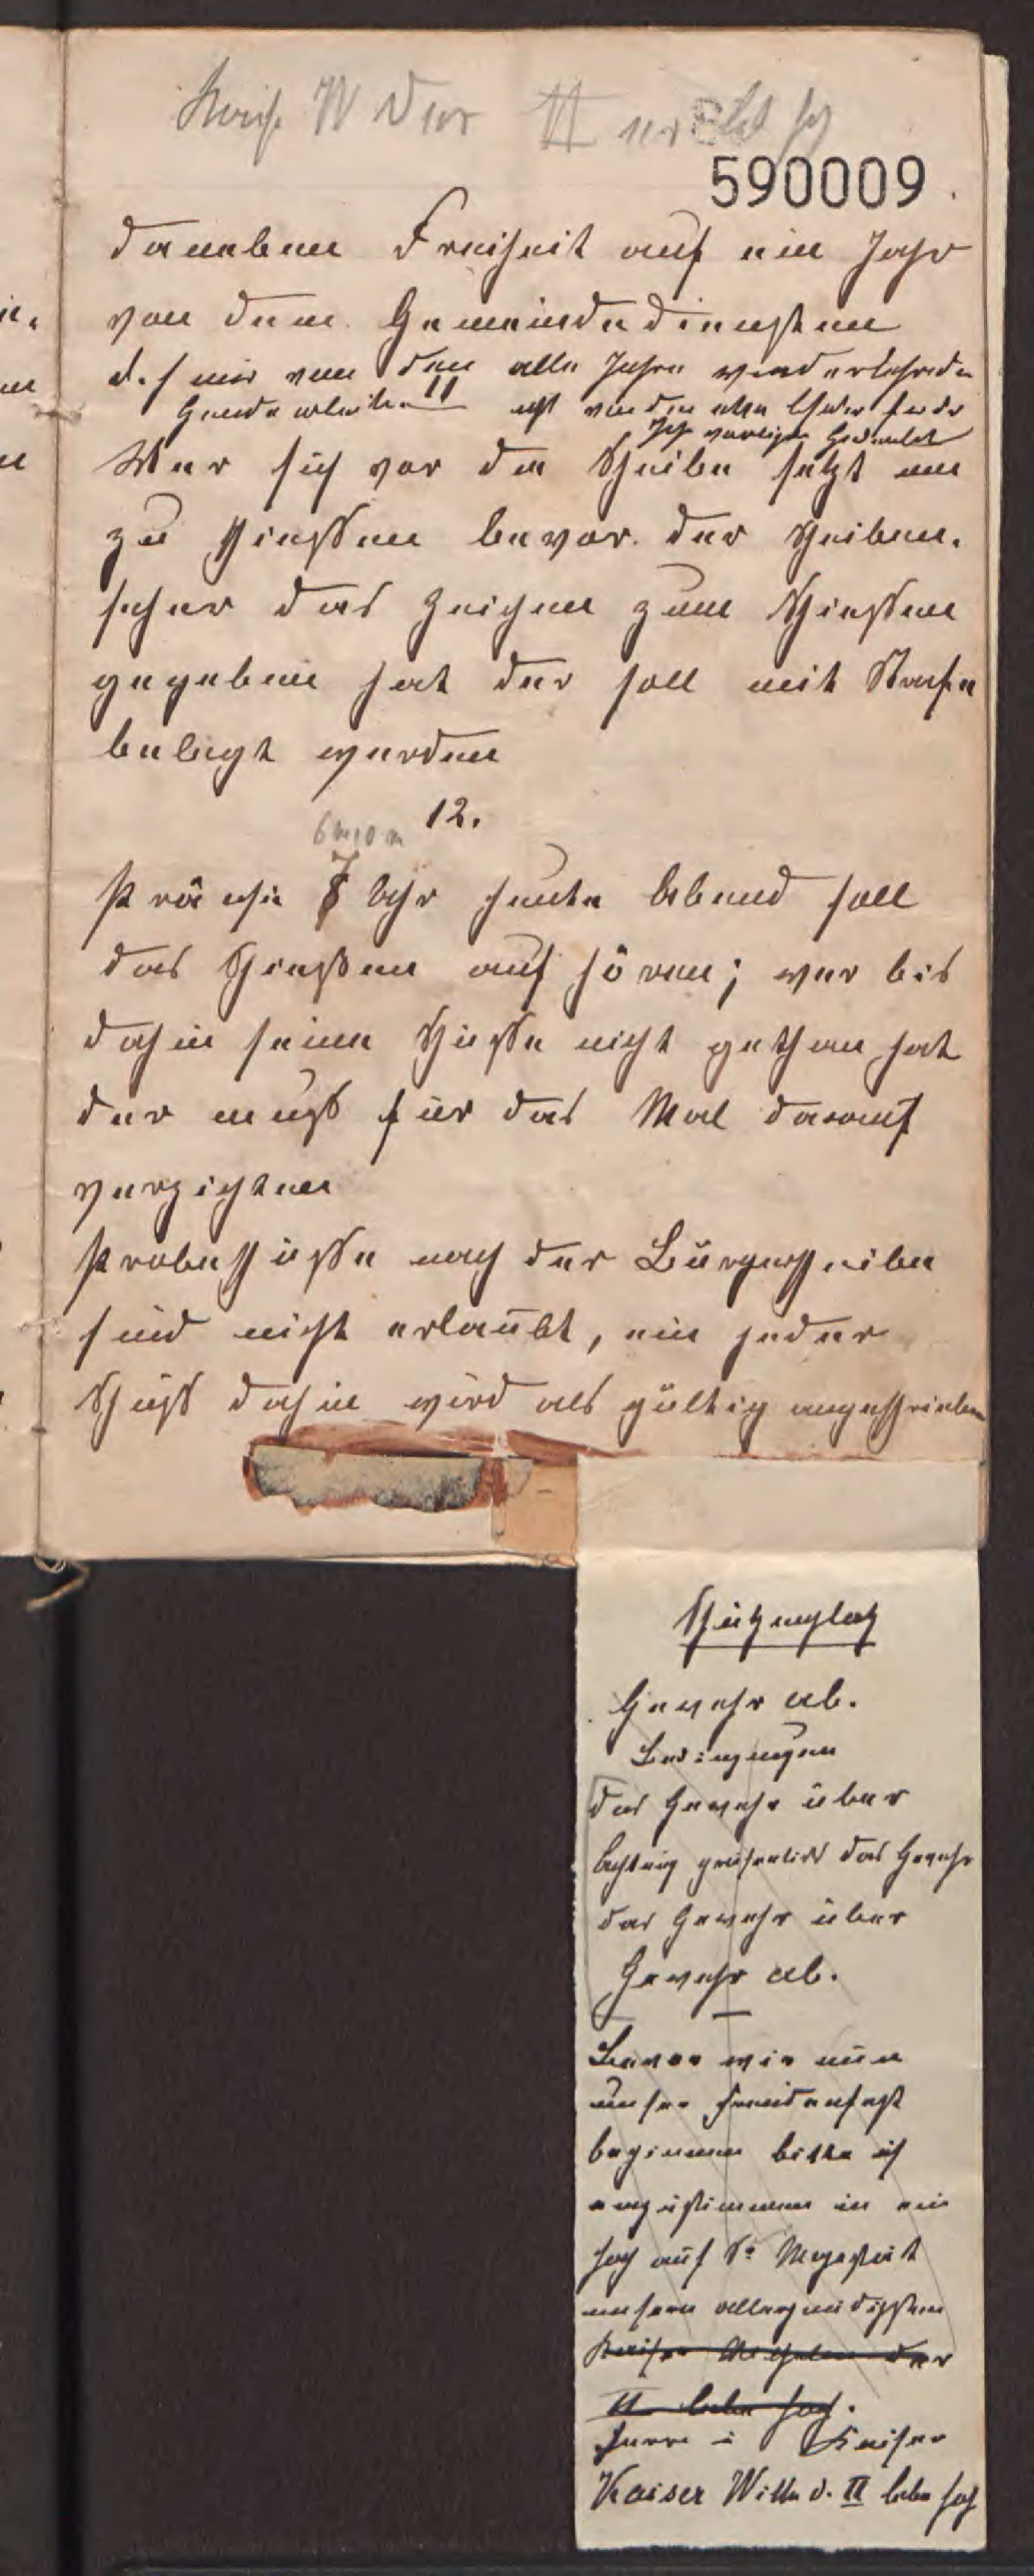 Kais. W der II er lebe hoch
590009
daneben Freiheit auf ein Jahr
von dem Gemeindediensten
d. h. nur von den alle Jahre wiederkehrenden
Handarbeiten
Wer sich vor der Scheibe setzt um
zu schiessen bevor der Scheiben-
seher das Zeichen zum Schiessen
gegeben hat der soll mit Strafe
belegt werden
12.
Präcise 7 Uhr heute Abend soll
das Schiessen auf hören; wer bis
dahin seine Schüsse nicht gethan hat
der muss für das Mal darauf
verzichten
Probeschüsse nach der Bürgerscheibe
sind nicht erlaubt, ein jeder
Schuss dahin wird als gültig angeschrieben
Schützenplatz
Gewehr ab.
Bedingungen
Das Gewehr über
Achtung präsentirt das Gewehr
das Gewehr über
Gewehr ab.
Bevor wir nun
unser Freudenfest
beginnen bitte ich
einzustimmen in ein
hoch auf Sr Majestät
unsern allergnädigsten
Kaiser Wilhelm der
II lebe hoch.
Herrn Kaiser
Kaiser Wilh d. II lebe hoch